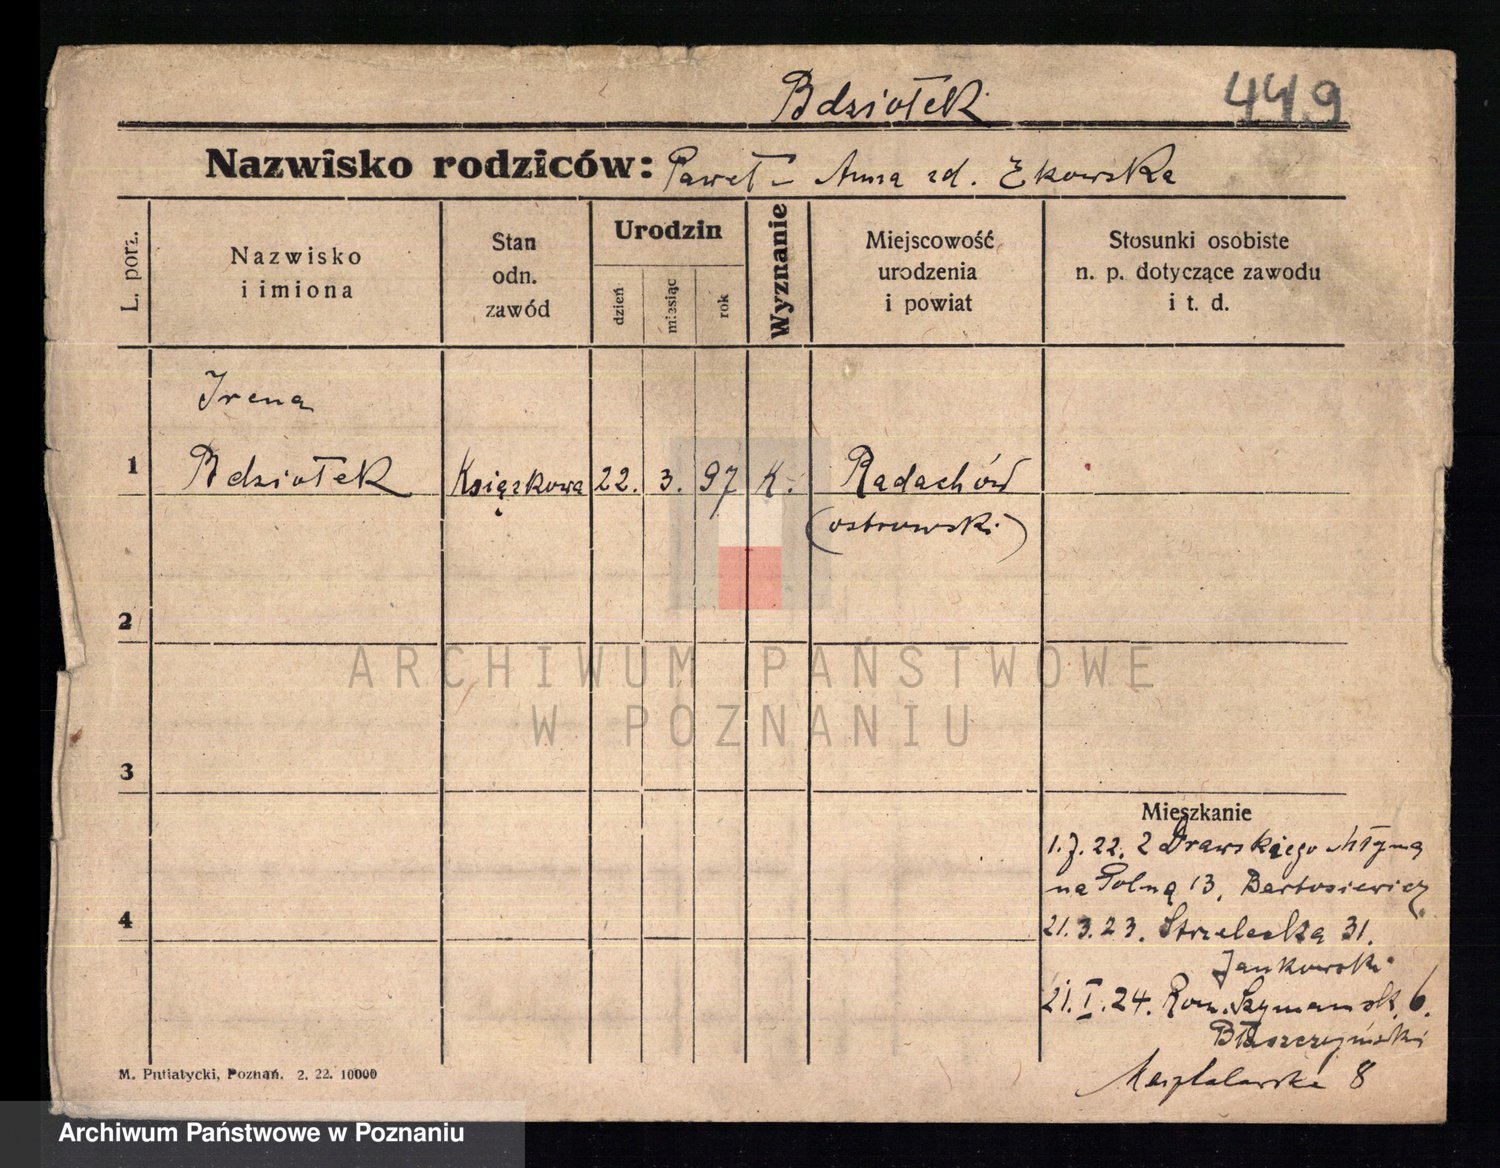 Bdziołek 449
Nazwisko rodziców: Paweł - Anna zd. Ekowska
L. porz.
Nazwisko
i imiona
Stan
odn.
zawód
Urodzin
dzień
miesiąc
rok
Wyznanie
Miejscowość
urodzenia
i powiat
Stosunki osobiste
n. p. dotyczące zawodu
i t. d.
Irena
1 Bdziołek Książkowa 22. 3. 97 K. Radachów
(ostrowski)
2
3
Mieszkanie
1.7.22. z Drawskiego Młyna
na Polną 13, Bartosiewicz
4
21.3.23. Strzelecka 31.
Jankowski
21.I.24. Rom. Szymańsk. 6.
Błaszczyński
Masztalarska 8
M. Putiatycki, Poznań. 2. 22. 10000
ARCHIWUM PAŃSTWOWE
W POZNANIU
Archiwum Państwowe w Poznaniu